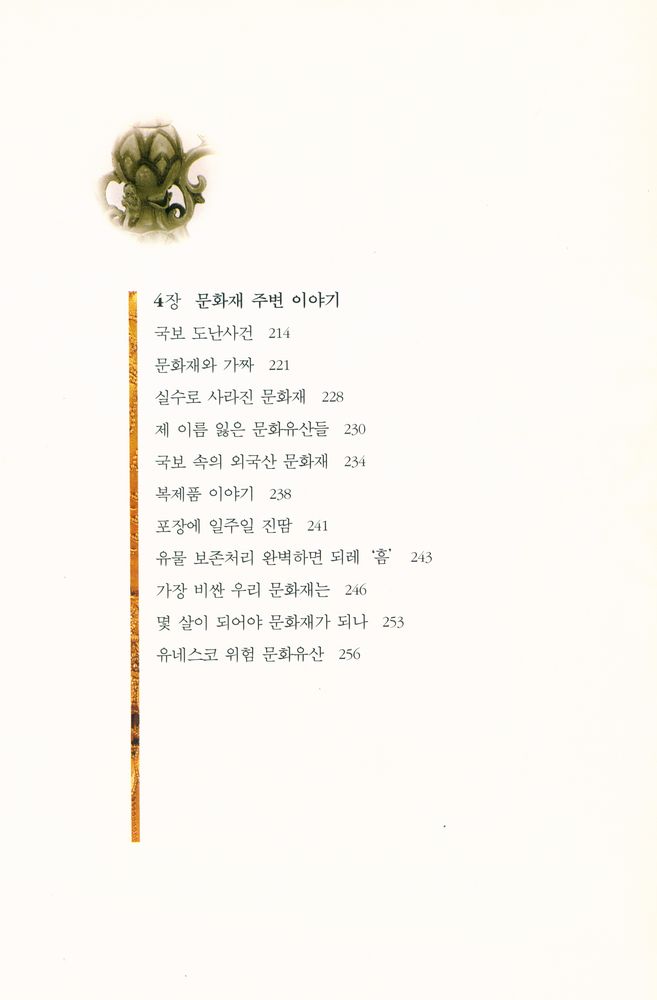 4장 문화재 주변 이야기
국보 도난사건 214
문화재와 가짜 221
실수로 사라진 문화재 228
제 이름 잃은 문화유산들 230
국보 속의 외국산 문화재 234
복제품 이야기 238
포장에 일주일 진땀 241
유물 보존처리 완벽하면 되레 ‘흠’ 243
가장 비싼 우리 문화재는 246
몇 살이 되어야 문화재가 되나 253
유네스코 위험 문화유산 256